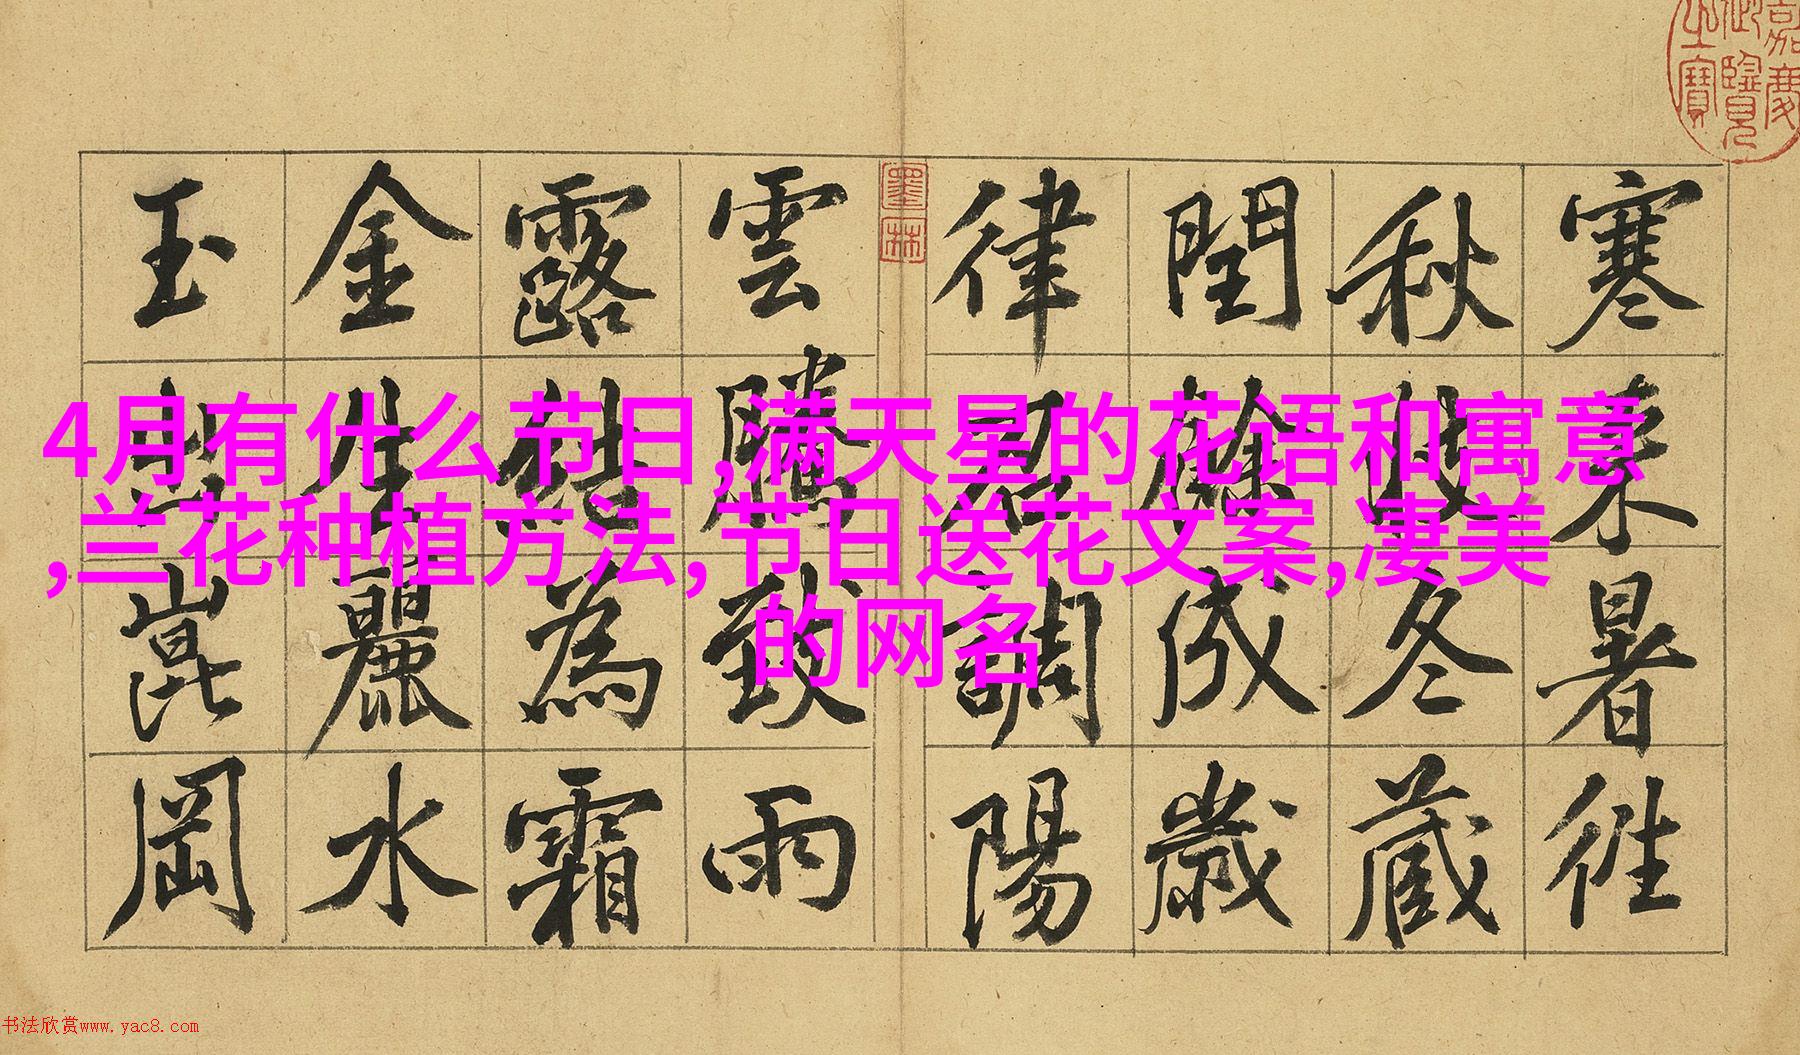 嘉慶
御覽
之寶
寒來暑徃
秋收冬蔵
閏餘成歲
律召調陽
墨林
雲騰致雨
露結為霜
金生麗水
玉出崑岡
4月有什么节日,满天星的花语和寓意
,兰花种植方法,节日送花文案,凄美
的网名
书法欣赏www.yac8.com